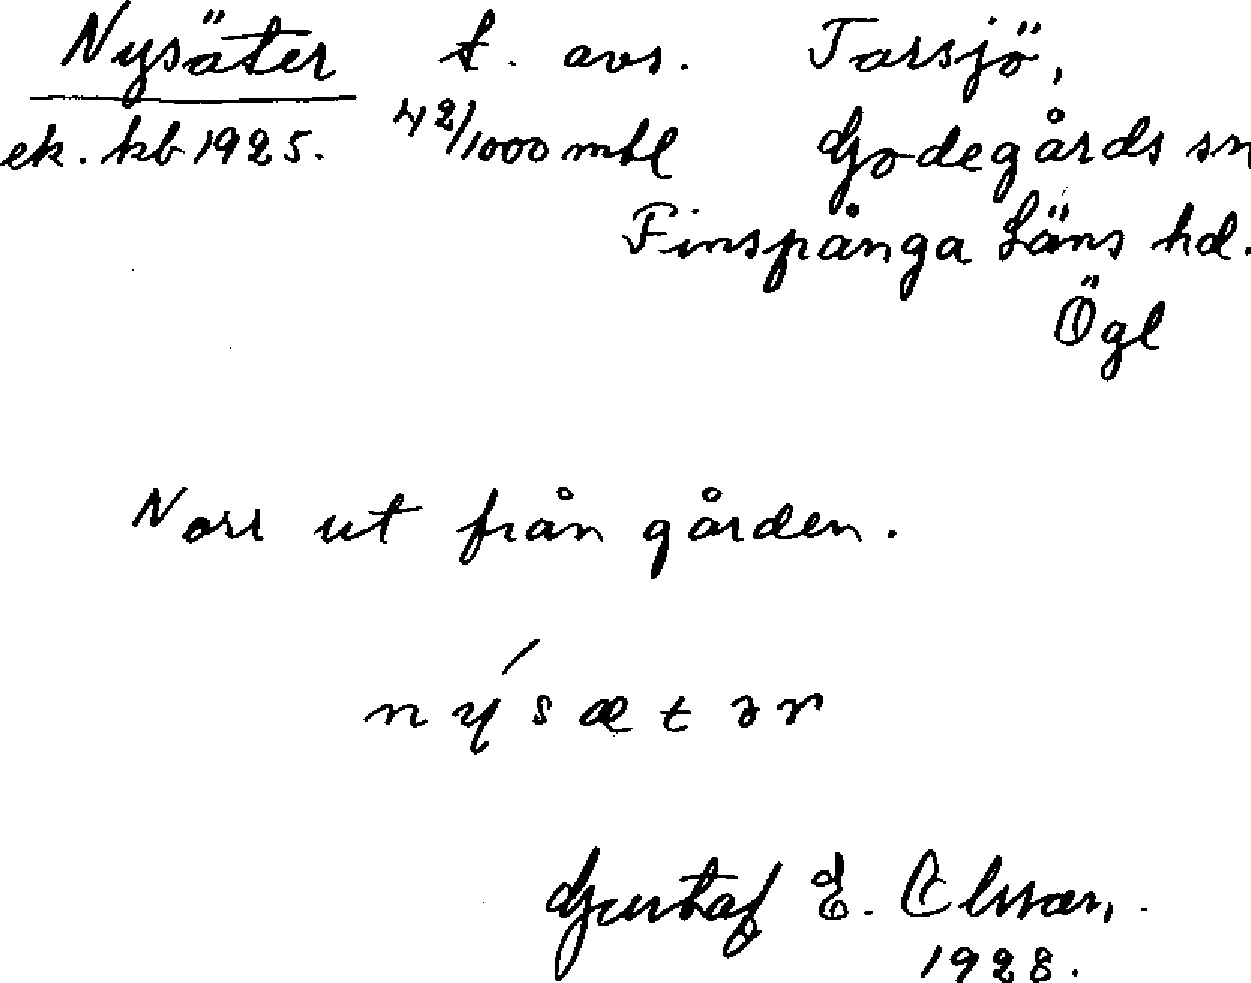 Nysäter t. avs. Tarsjö,
ek. kb 1925. 42/1000 mtl Godegårds sn
Finspånga Läns hd.
Ögl
Norr ut från gården.
nýsætər
Gustaf E. Olsson.
1928.